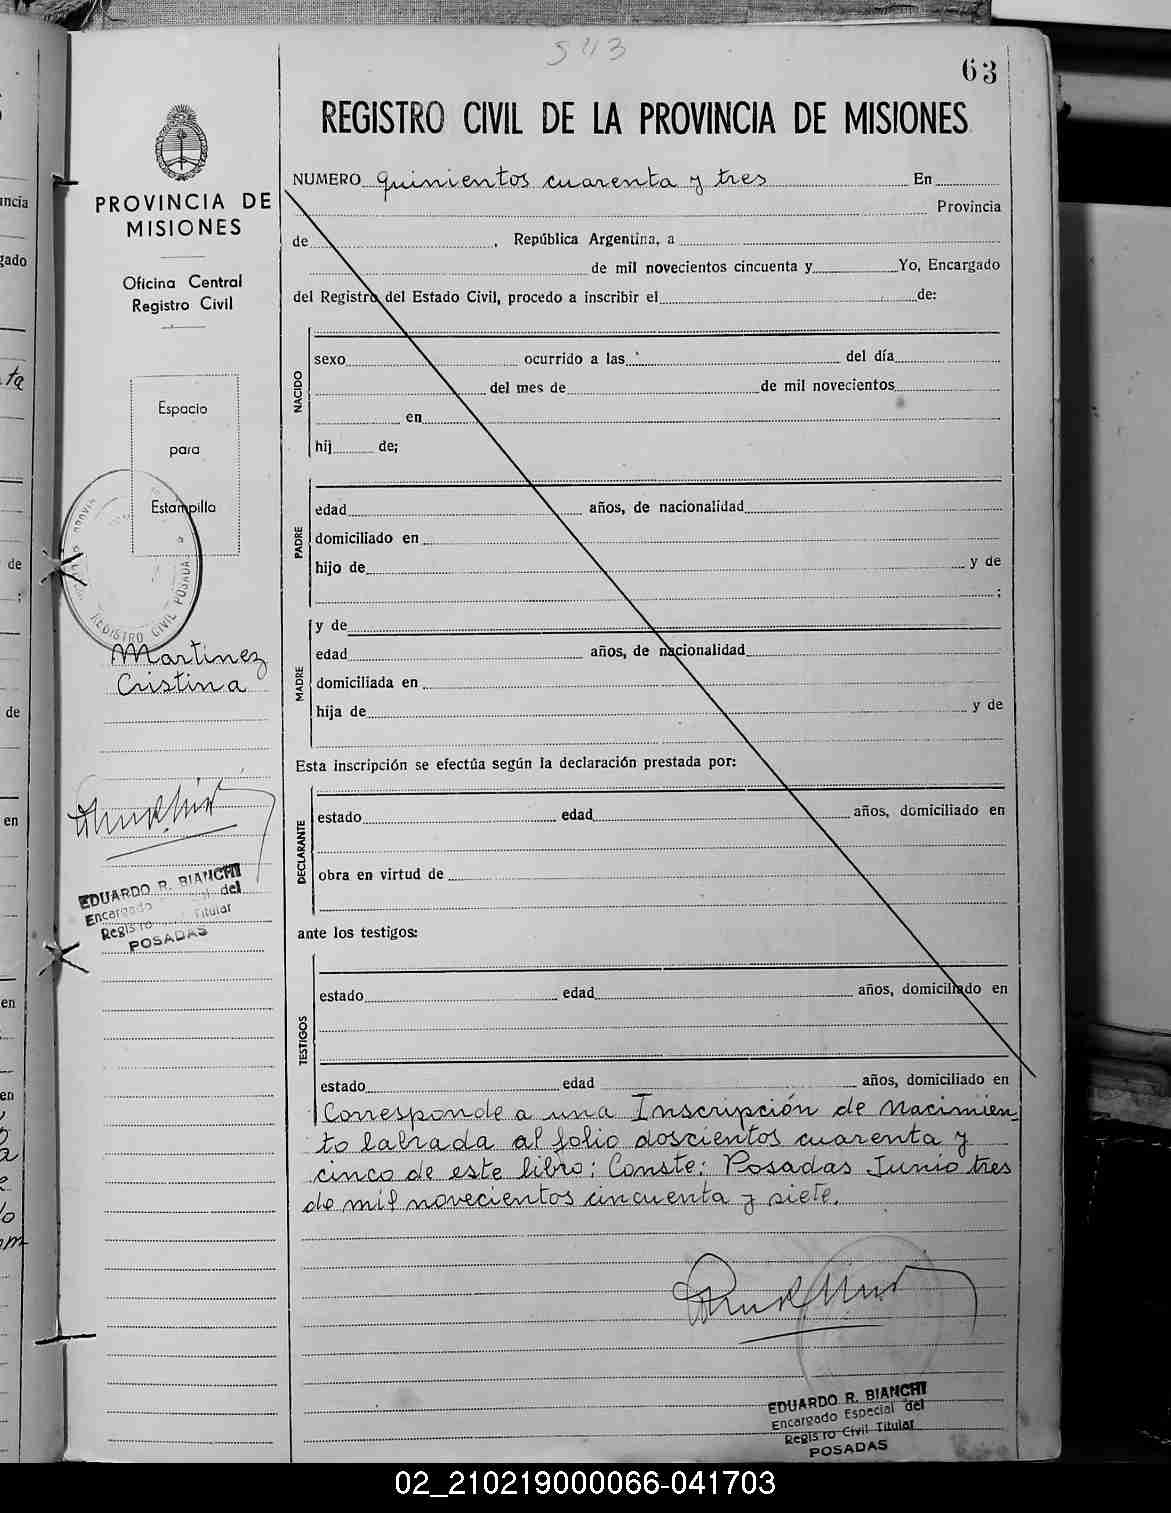 543
63
REGISTRO CIVIL DE LA PROVINCIA DE MISIONES
PROVINCIA DE
MISIONES
Oficina Central
Registro Civil
Espacio
para
Estampilla
REGISTRO CIVIL POSADAS
Martinez
Cristina
EDUARDO R. BIANCHI
Encargado del
Registro Titular
POSADAS
NUMERO quinientos cuarenta y tres En
Provincia
de , República Argentina, a
de mil novecientos cincuenta y Yo, Encargado
del Registro del Estado Civil, procedo a inscribir el de:
NACIDO
sexo ocurrido a las del día
del mes de de mil novecientos
en
hij de;
PADRE
edad años, de nacionalidad
domiciliado en
hijo de y de
;
MADRE
y de
edad años, de nacionalidad
domiciliada en
hija de y de
Esta inscripción se efectúa según la declaración prestada por:
DECLARANTE
estado edad años, domiciliado en
obra en virtud de
ante los testigos:
TESTIGOS
estado edad años, domiciliado en
estado edad años, domiciliado en
Corresponde a una Inscripción de Nacimien
to labrada al folio doscientos cuarenta y
cinco de este libro: Conste: Posadas Junio tres
de mil novecientos cincuenta y siete.
EDUARDO R. BIANCHI
Encargado Especial del
Registro Civil Titular
POSADAS
02_210219000066-041703